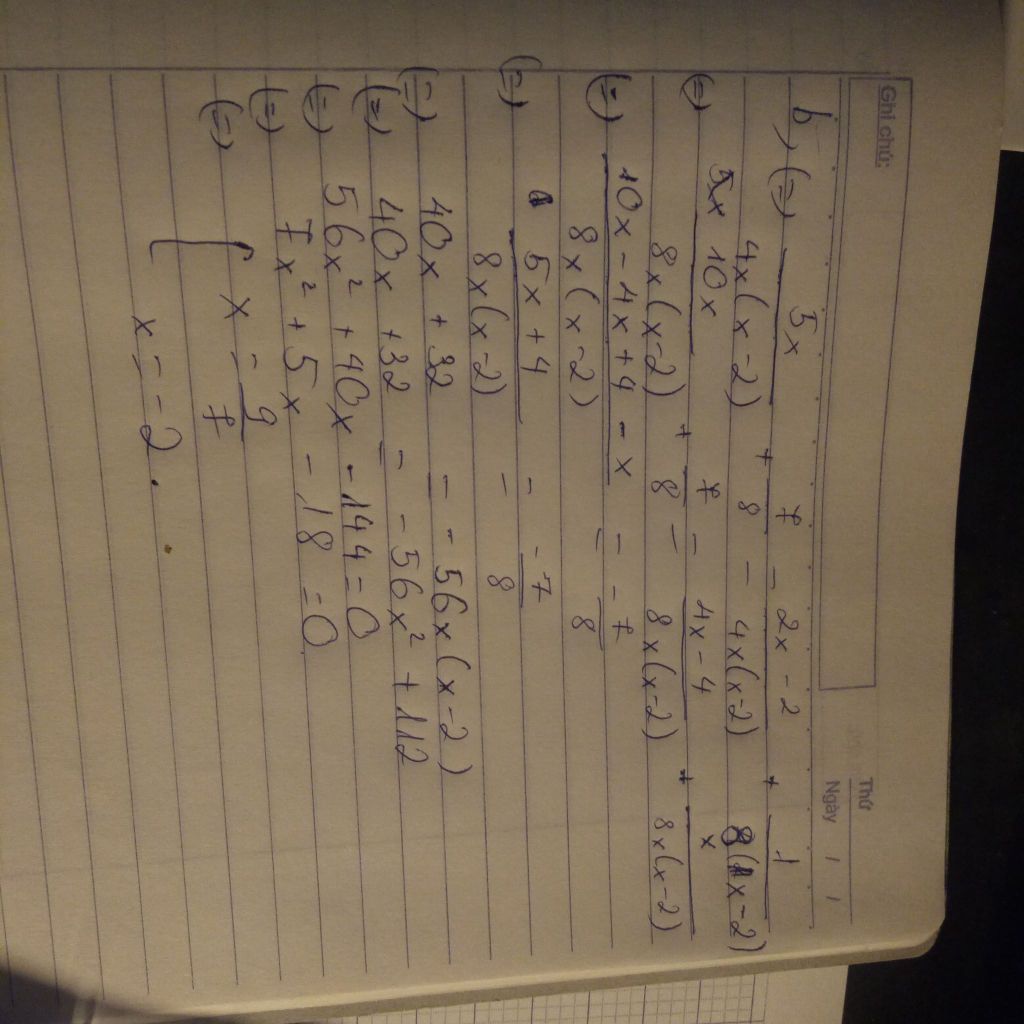 Ghi chú:
Thứ
Ngày / /
b) (=) 5x/4x(x-2) + 7/8 = 2x-2/4x(x-2) + 1/8(x-2)
(=) 5x 10x/8x(x-2) + 7/8 = 4x-4/8x(x-2) + x/8x(x-2)
(=) 10x-4x+4-x/8x(x-2) = -7/8
(=) 5x+4/8x(x-2) = -7/8
(=) 40x + 32 = -56x(x-2)
(=) 40x + 32 = -56x² + 112
(=) 56x² + 40x - 144 = 0
(=) 7x² + 5x - 18 = 0
(=) [ x = 9/7
x = -2.